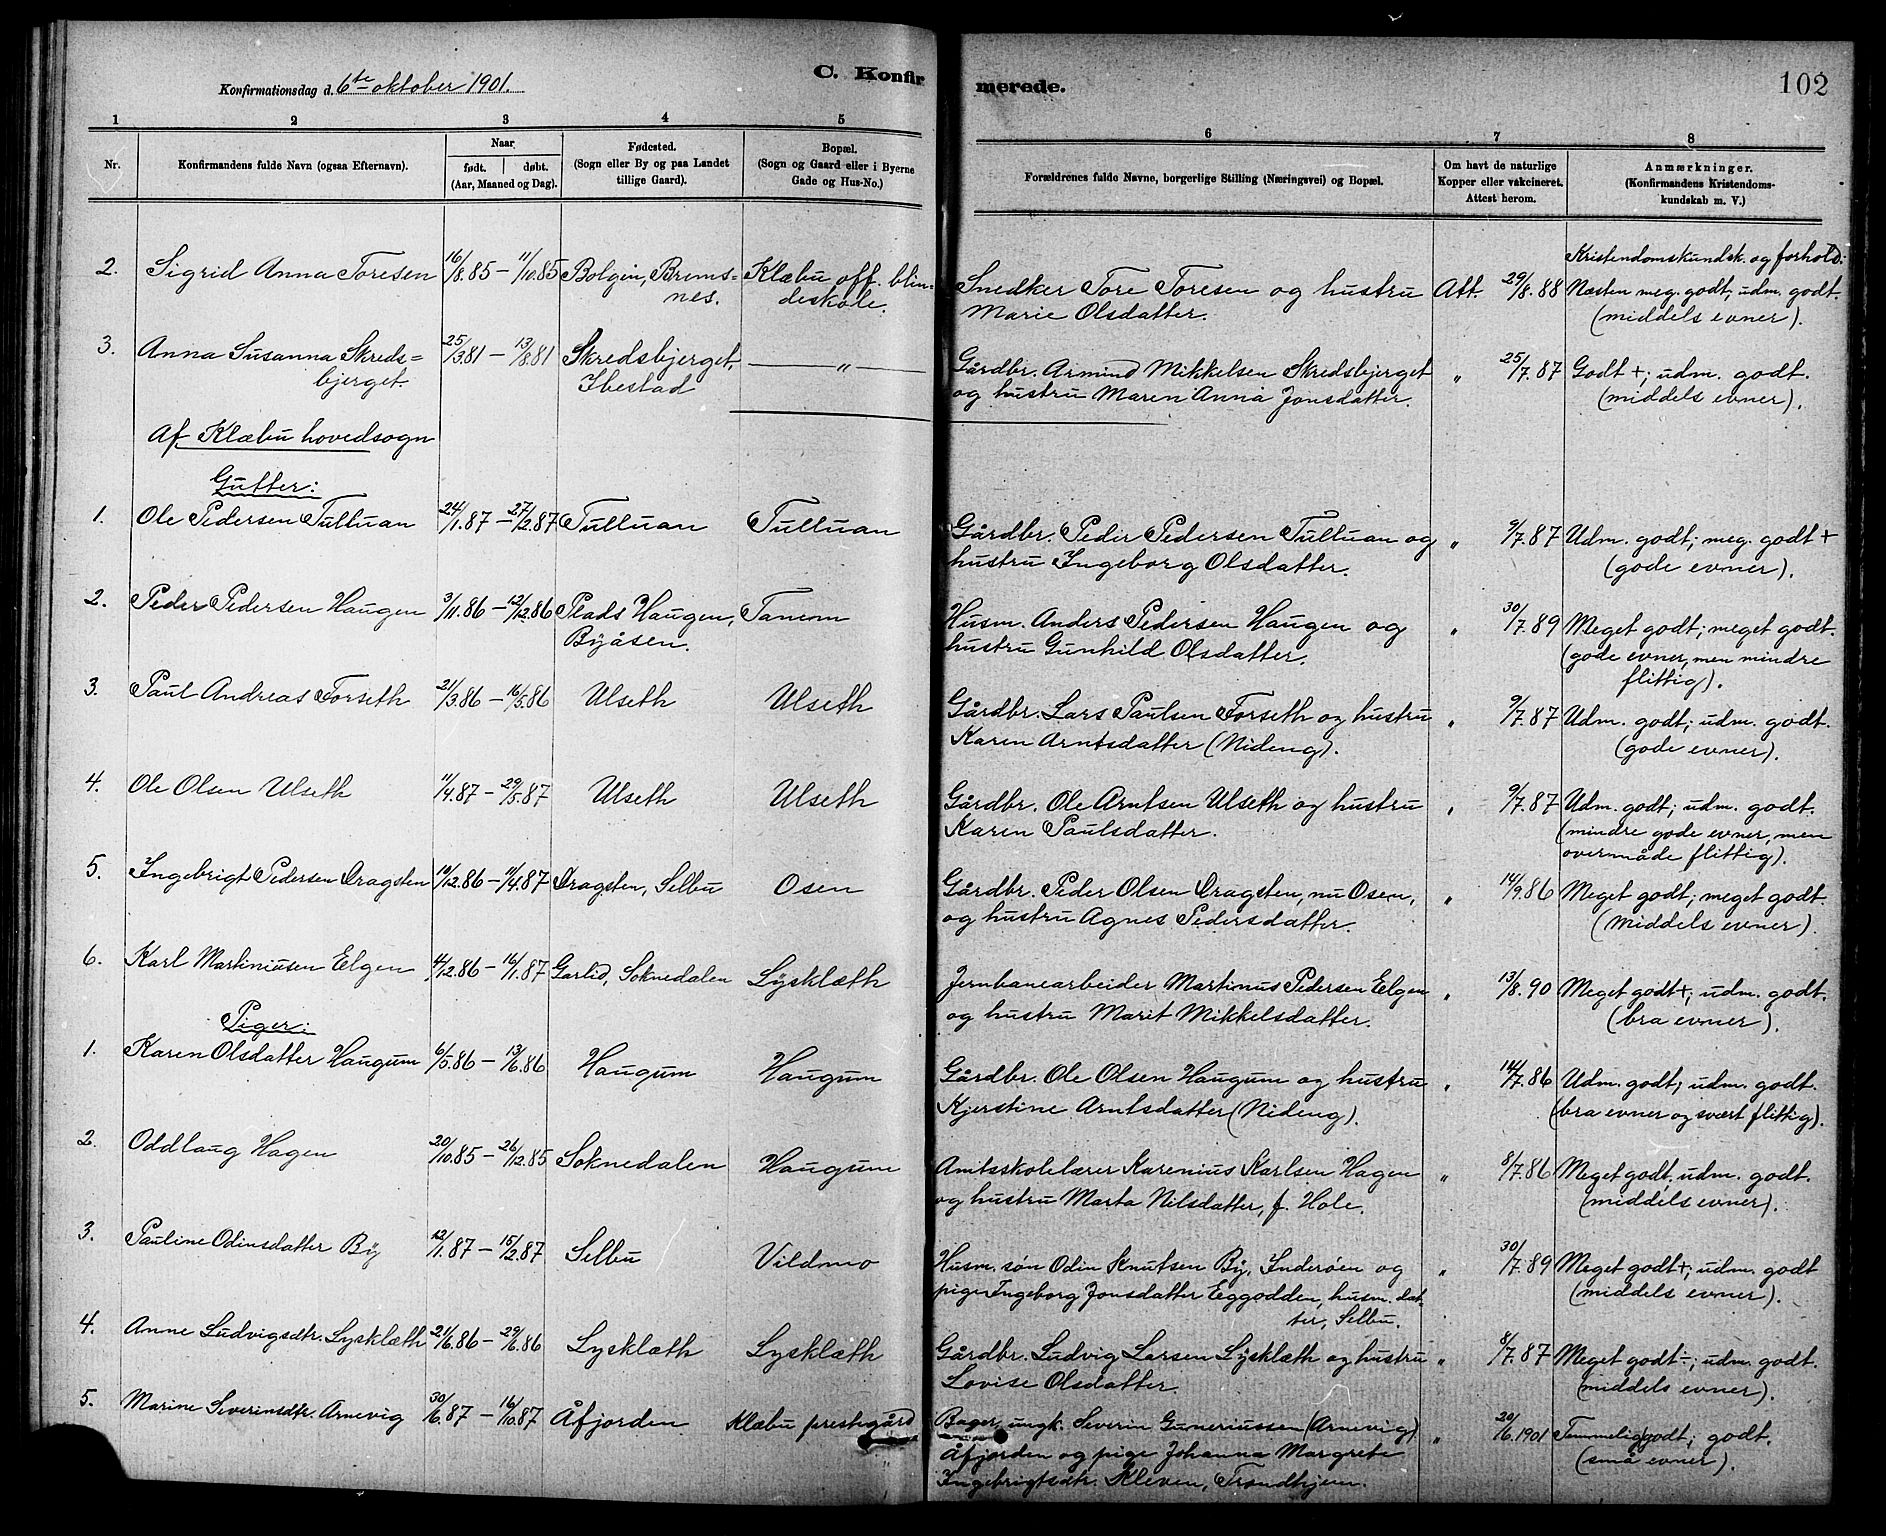 Konfirmationsdag d. 6te oktober 1901.
C. Konfirmerede.
102
1 2 3 4 5 6 7 8
Nr.
Konfirmandens fulde Navn (ogsaa Efternavn).
Naar
født. døbt.
(Aar, Maaned og Dag).
Fødested.
(Sogn eller By og paa Landet
tillige Gaard).
Bopæl.
(Sogn og Gaard eller i Byerne
Gade og Hus-No.)
Forældrenes fulde Navne, borgerlige Stilling (Næringsvei) og Bopæl.
Om havt de naturlige
Kopper eller vakcineret.
Attest herom.
Anmærkninger.
(Konfirmandens Kristendoms-
kundskab m. V.)
Kristendomskundsk. og forhold:
2. Sigrid Anna Toresen 16/8.85 – 11/10.85 Bolgin, Brems= Klæbu off. blin- Snedker Tore Toresen og hustru Att. 29/8.88 Næsten meg. godt; udm. godt.
nes. deskole. Marie Olsdatter. (middels evner).
3. Anna Susanna Skreds= 25/3.81 – 13/8.81 Skredsbjerget, — „ — Gårdbr. Armind Mikkelsen Skredsbjerget „ 25/7.87 Godt +; udm. godt.
bjerget Ibestad og hustru Maren Anna Jonsdatter. (middels evner).
Af Klæbu hovedsogn
Gutter:
1. Ole Pedersen Tulluan 24/1.87 – 27/2.87 Tulluan Tulluan Gårdbr. Peder Pedersen Tulluan og „ 9/7.87 Udm. godt; meg. godt +
hustru Ingeborg Olsdatter. (gode evner).
2. Peder Pedersen Haugen 3/11.86 – 12/12.86 Plads Haugen, Tanem Husm. Anders Pedersen Haugen og „ 30/7.89 Meget godt; meget godt.
Byåsen. hustru Gunhild Olsdatter. (gode evner, men mindre
flittig).
3. Paul Andreas Forseth 21/3.86 – 16/5.86 Ulseth Ulseth Gårdbr. Lars Paulsen Forseth og hustru „ 9/7.87 Udm. godt; udm. godt.
Karen Arntsdatter (Nideng). (gode evner).
4. Ole Olsen Ulseth 11/4.87 – 29/5.87 Ulseth Ulseth Gårdbr. Ole Arntsen Ulseth og hustru „ 9/7.87 Udm. godt; udm. godt.
Karen Paulsdatter. (mindre gode evner, men
overmåde flittig).
5. Ingebrigt Pedersen Dragsten 10/12.86 – 11/4.87 Dragsten, Selbu Osen Gårdbr. Peder Olsen Dragsten, nu Osen, „ 14/9.86 Meget godt; meget godt.
og hustru Agnes Pedersdatter. (Middels evner).
6. Karl Martiniusen Elgen 4/12.86 – 16/1.87 Garlid, Soknedalen Lysklæth Jernbanearbeider Martinus Pedersen Elgen „ 13/8.90 Meget godt +; udm. godt.
og hustru Marit Mikkelsdatter. (bra evner).
Piger:
1. Karen Olsdatter Haugum 6/5.86 – 13/6.86 Haugum Haugum Gårdbr. Ole Olsen Haugum og hustru „ 14/7.86 Udm. godt; udm. godt.
Kjerstine Arntsdatter (Nideng). (bra evner og svært flittig).
2. Oddlaug Hagen 20/10.85 – 26/12.85 Soknedalen Haugum Amtsskolelærer Karenius Karlsen Hagen „ 8/7.86 Meget godt, udm. godt.
og hustru Marta Nilsdatter, f. Hole. (middels evner).
3. Pauline Odinsdatter By 12/1.87 – 15/2.87 Selbu Vildmo Husm. søn Odin Knutsen By, Inderøen og „ 30/7.89 Meget godt +; udm. godt
pige Ingeborg Jonsdatter Eggodden, husm. dat- (middels evner).
ter, Selbu.
4. Anne Ludvigsdtr. Lysklæth 21/6.86 – 29/6.86 Lysklæth Lysklæth Gårdbr. Ludvig Larsen Lysklæth og hustru „ 8/7.87 Meget godt ÷; udm. godt.
Lovise Olsdatter. (middels evner).
5. Marine Severinsdtr. Arnevig 30/6.87 – 16/10.87 Åfjorden Klæbu prestegård Bager, ungk. Severin Guneriussen (Arnevig) „ 20/6.1901 Temmelig godt; godt.
Åfjorden og pige Johanna Margrete (små evner).
Ingebrigtsdtr. Kleven, Trondhjem.